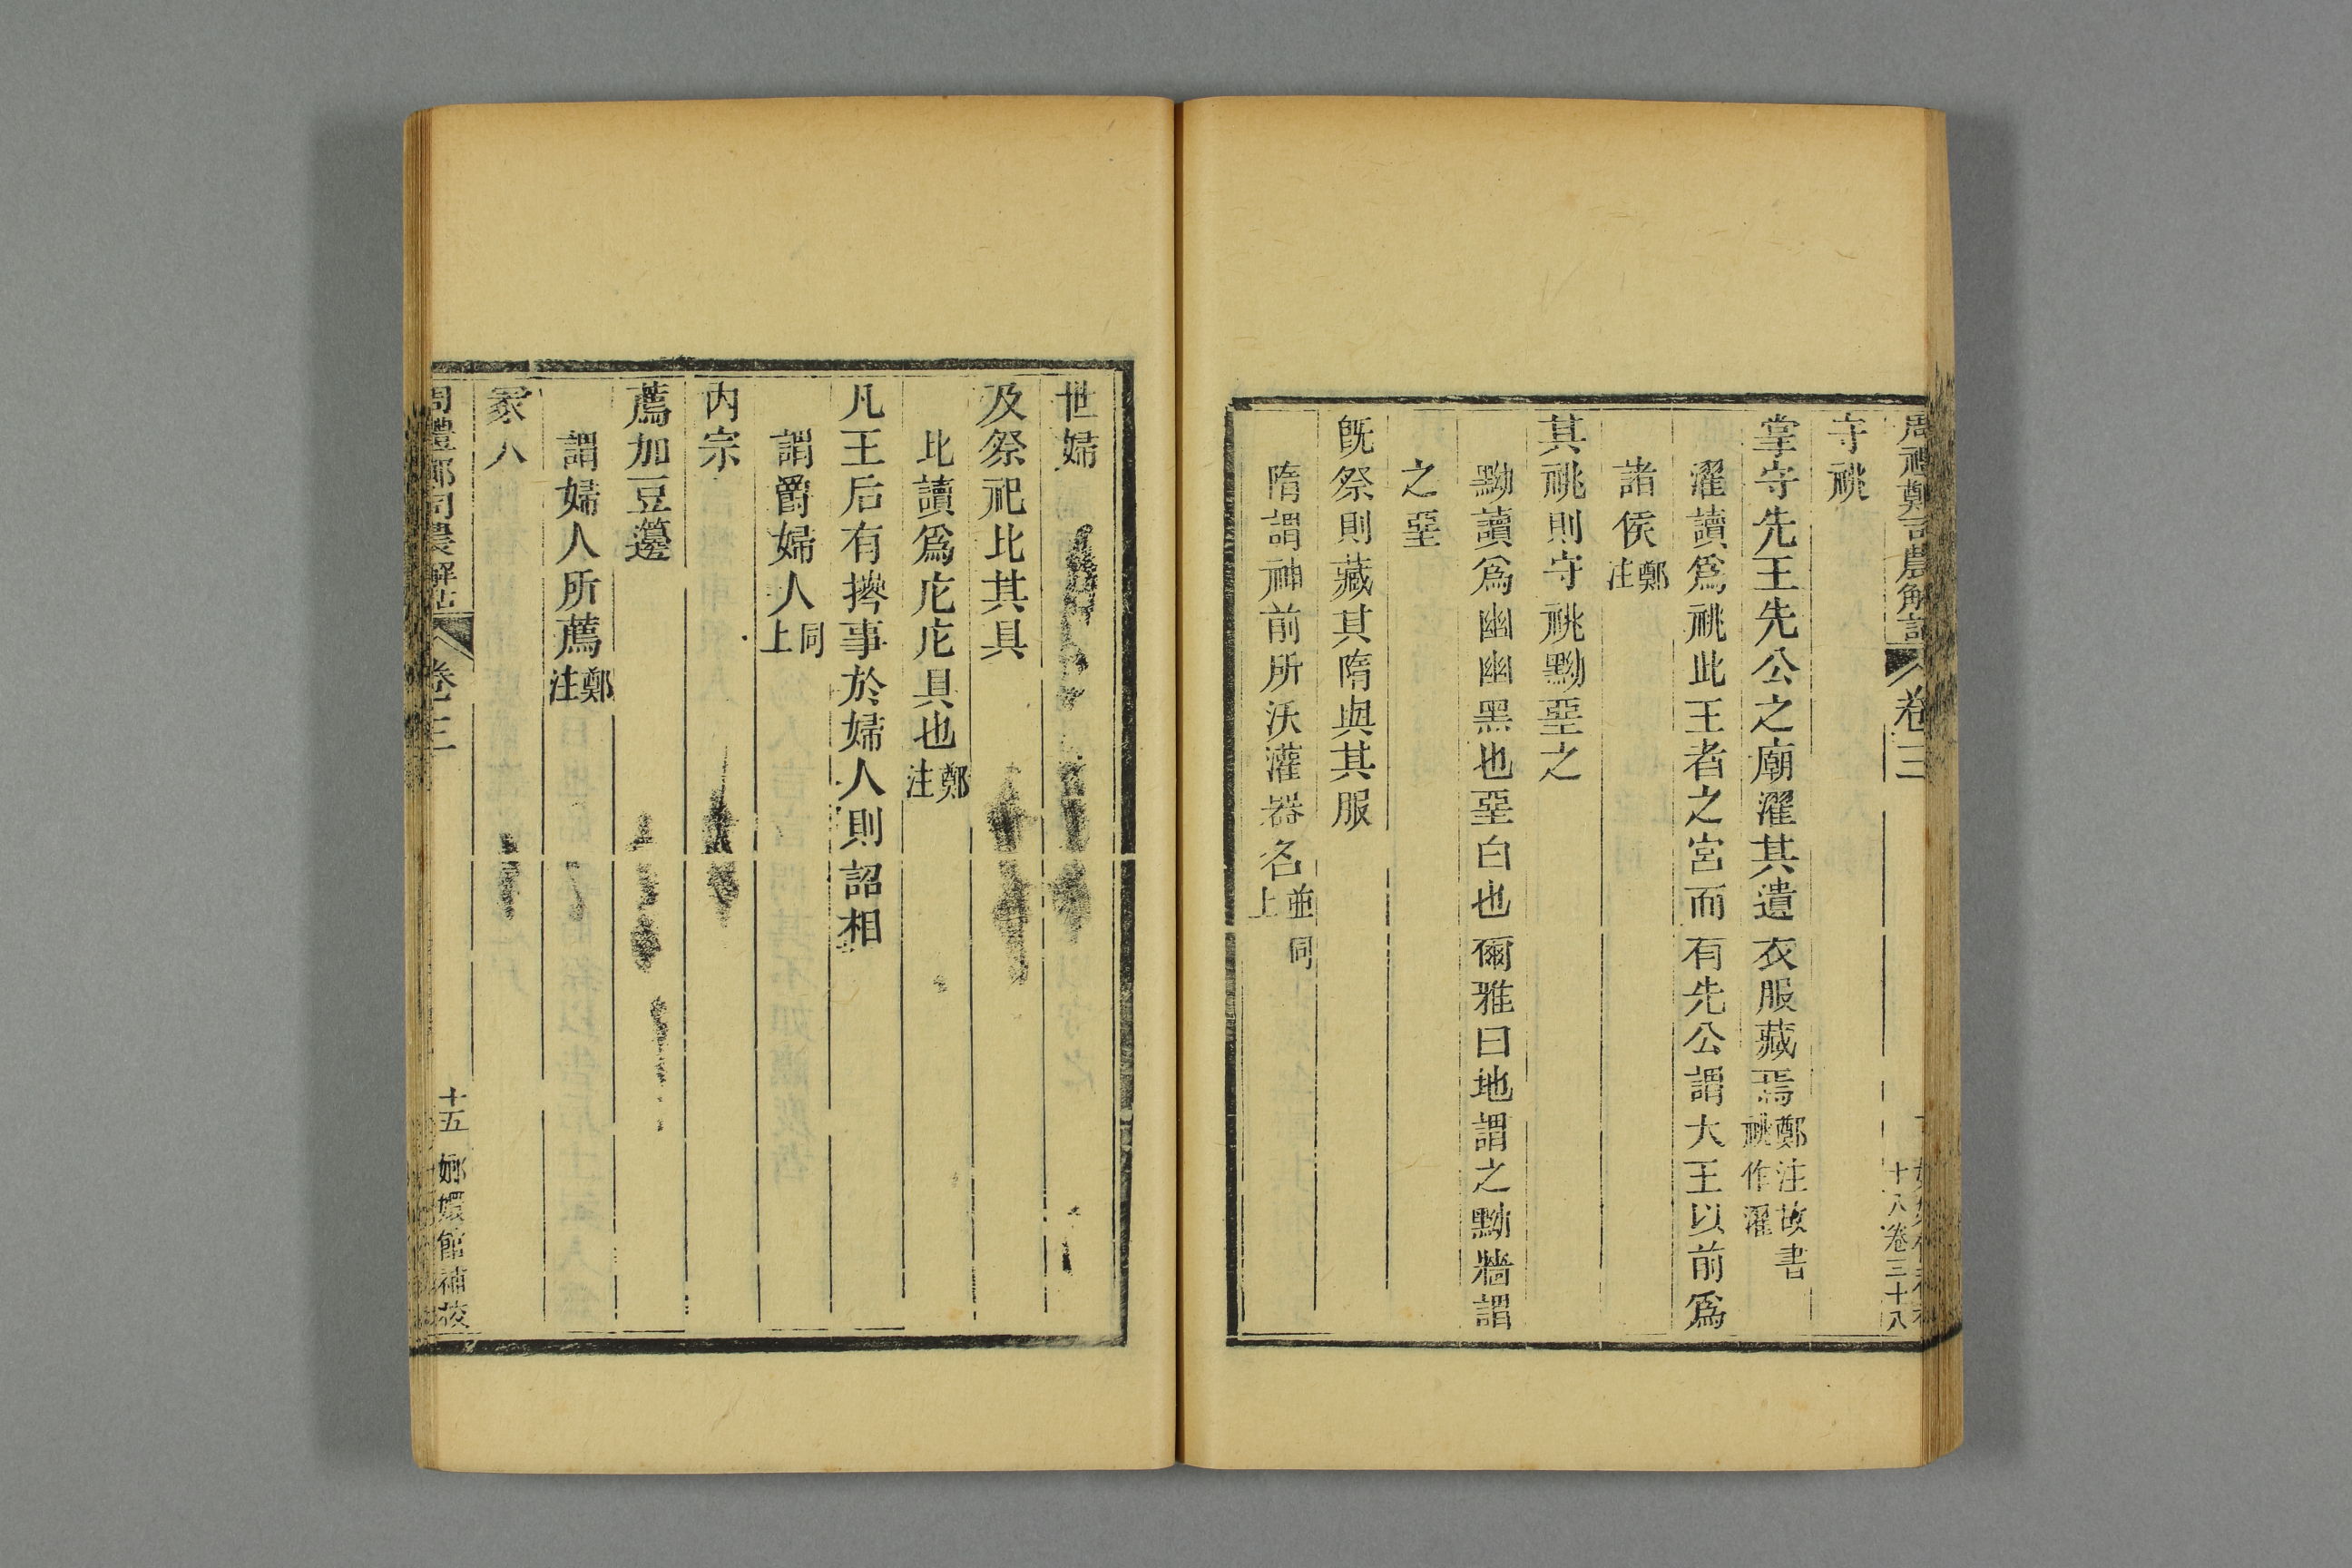 周禮鄭司農解詁 卷三
十八卷三十八
守祧
掌守先王先公之廟濯其遺衣服藏焉鄭注故書祧作濯
濯讀爲祧此王者之宮而有先公謂大王以前爲
諸侯鄭注
其祧則守祧黝堊之
黝讀爲幽幽黑也堊白也爾雅曰地謂之黝牆謂
之堊
旣祭則藏其隋與其服
隋謂神前所沃灌器名並同上
世婦
及祭祀比其具
比讀爲庀庀具也鄭注
凡王后有㩒事於婦人則詔相
謂爵婦人同上
内宗
薦加豆籩
謂婦人所薦鄭注
冢人
周禮鄭司農解詁 卷三 十五 嫏嬛館補校